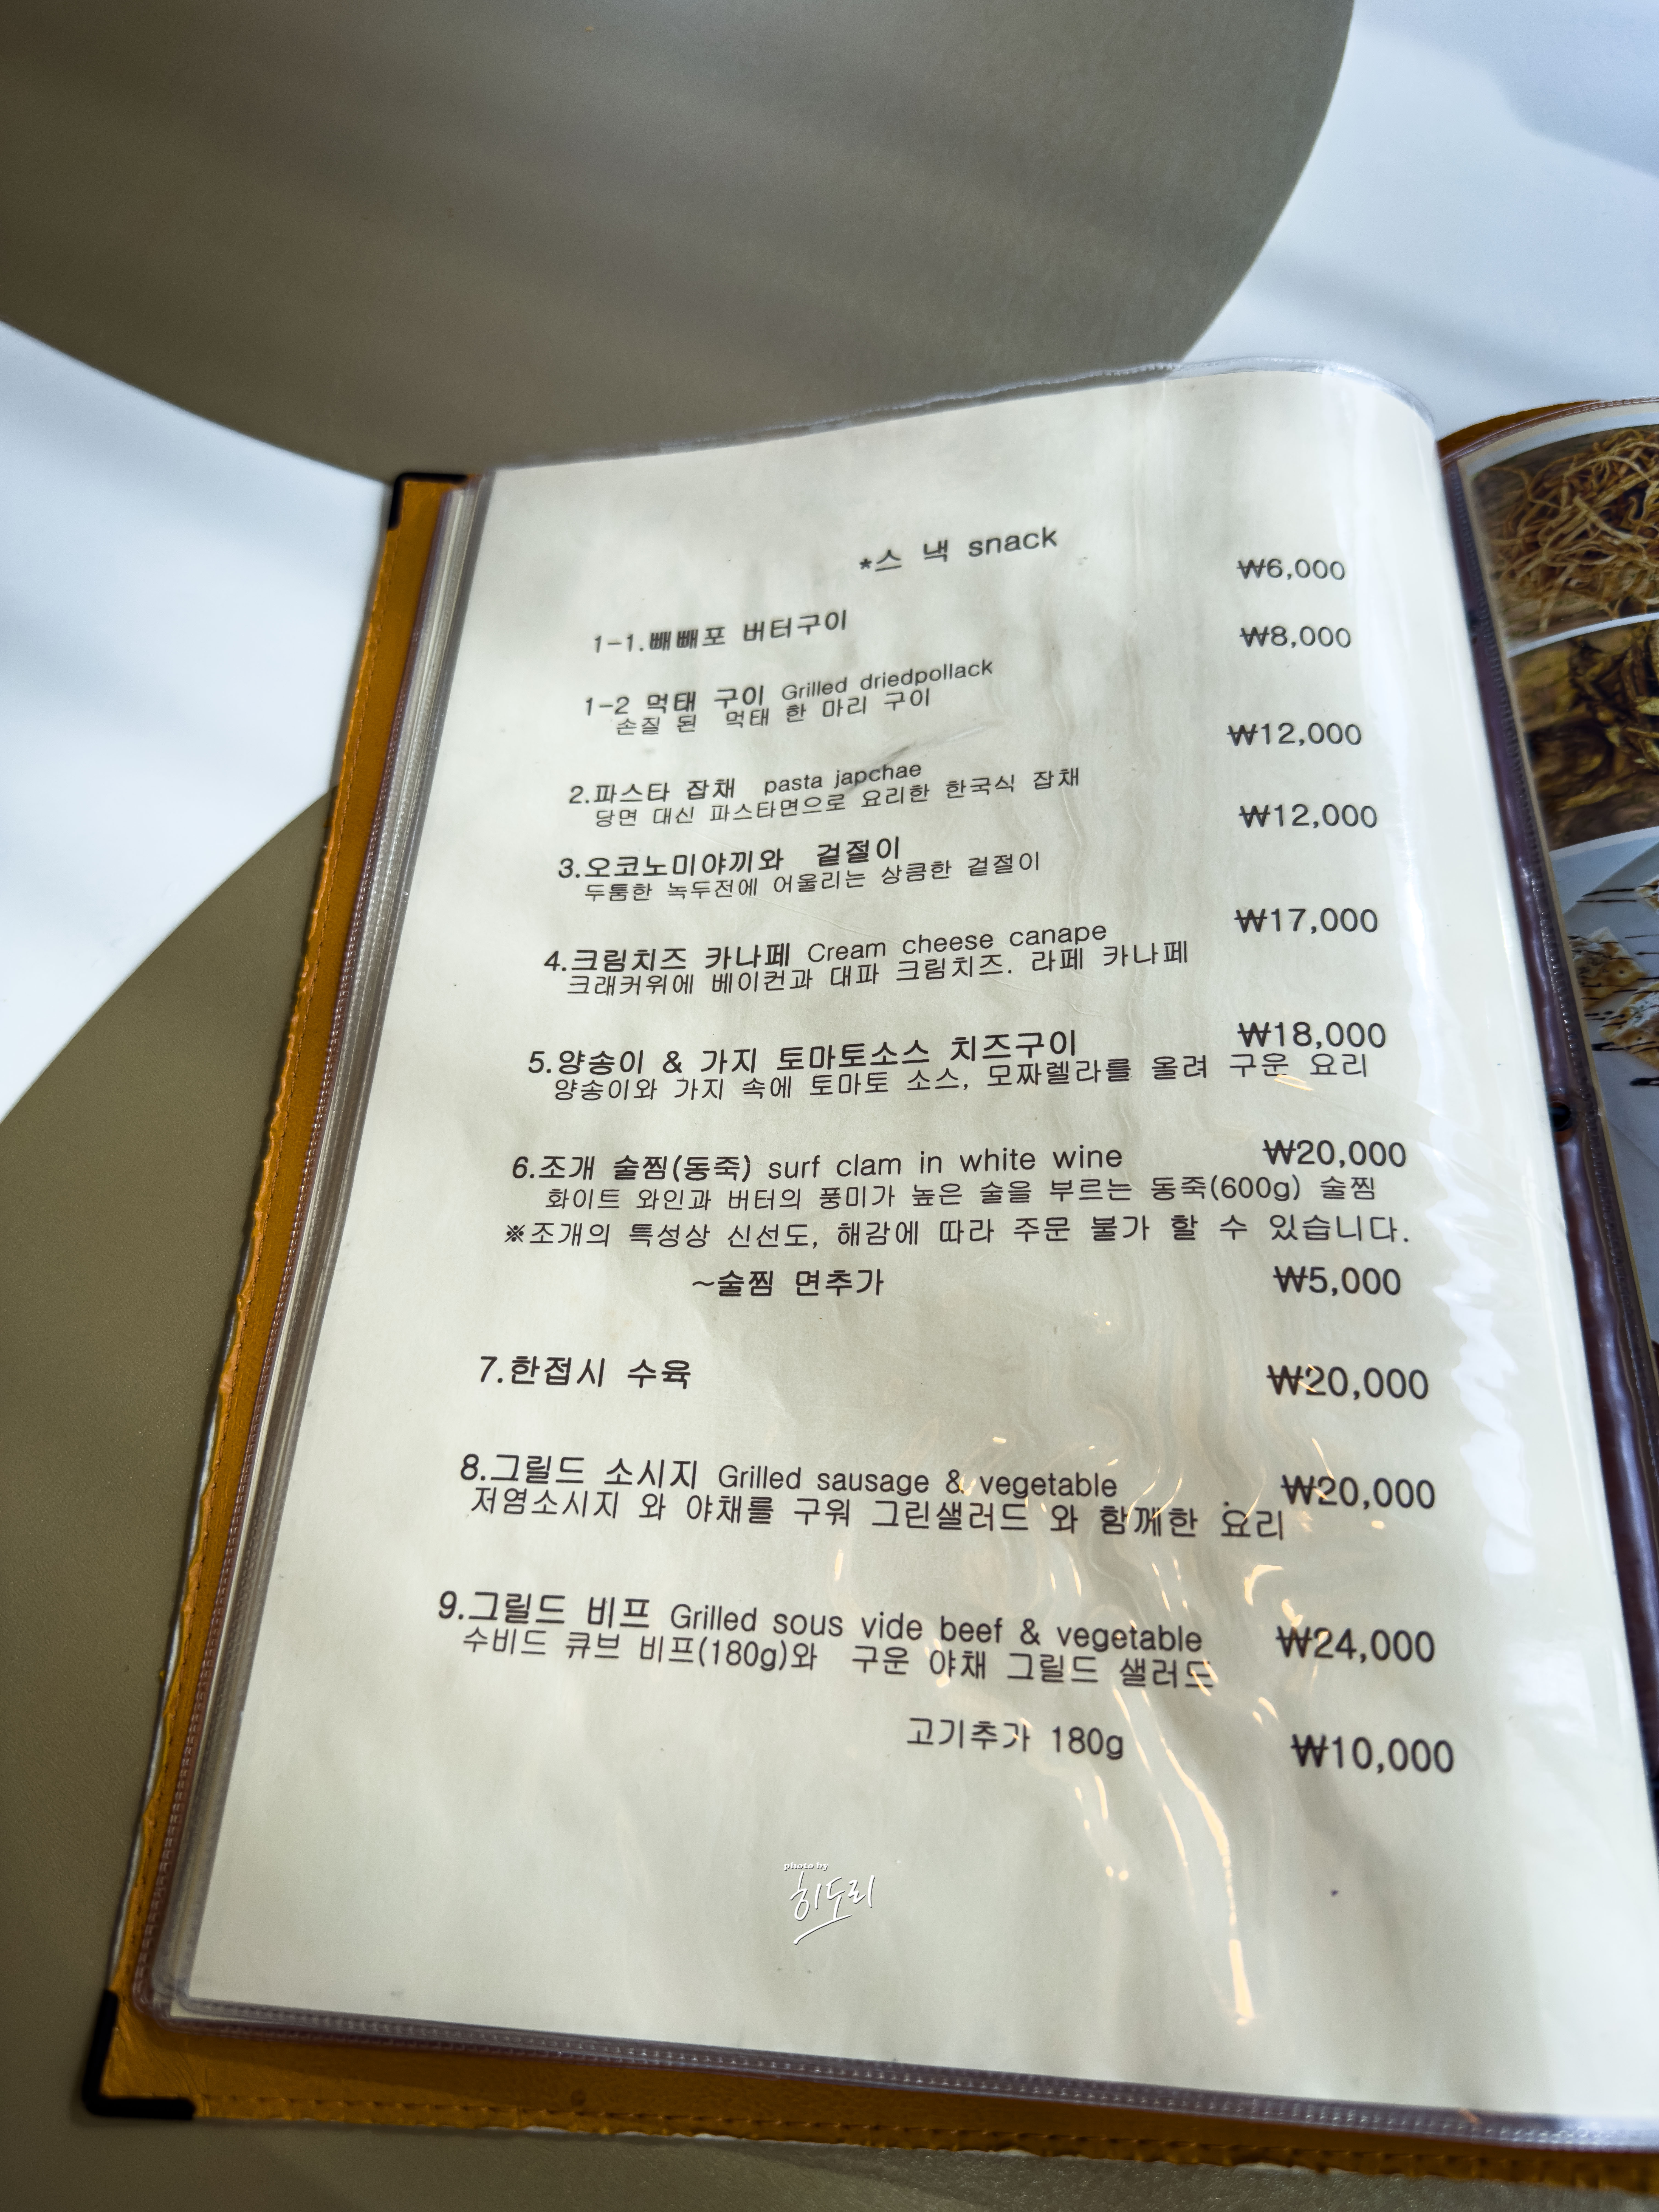 *스 낵 snack
₩6,000
1-1.빼빼포 버터구이
₩8,000
1-2 먹태 구이 Grilled driedpollack
손질 된 먹태 한 마리 구이
₩12,000
2.파스타 잡채 pasta japchae
당면 대신 파스타면으로 요리한 한국식 잡채
₩12,000
3.오코노미야끼와 겉절이
두툼한 녹두전에 어울리는 상큼한 겉절이
₩17,000
4.크림치즈 카나페 Cream cheese canape
크래커위에 베이컨과 대파 크림치즈. 라페 카나페
5.양송이 & 가지 토마토소스 치즈구이 ₩18,000
양송이와 가지 속에 토마토 소스, 모짜렐라를 올려 구운 요리
6.조개 술찜(동죽) surf clam in white wine ₩20,000
화이트 와인과 버터의 풍미가 높은 술을 부르는 동죽(600g) 술찜
※조개의 특성상 신선도, 해감에 따라 주문 불가 할 수 있습니다.
~술찜 면추가 ₩5,000
7.한접시 수육 ₩20,000
8.그릴드 소시지 Grilled sausage & vegetable ₩20,000
저염소시지 와 야채를 구워 그린샐러드 와 함께한 요리
9.그릴드 비프 Grilled sous vide beef & vegetable ₩24,000
수비드 큐브 비프(180g)와 구운 야채 그릴드 샐러드
고기추가 180g ₩10,000
photo by
히도리